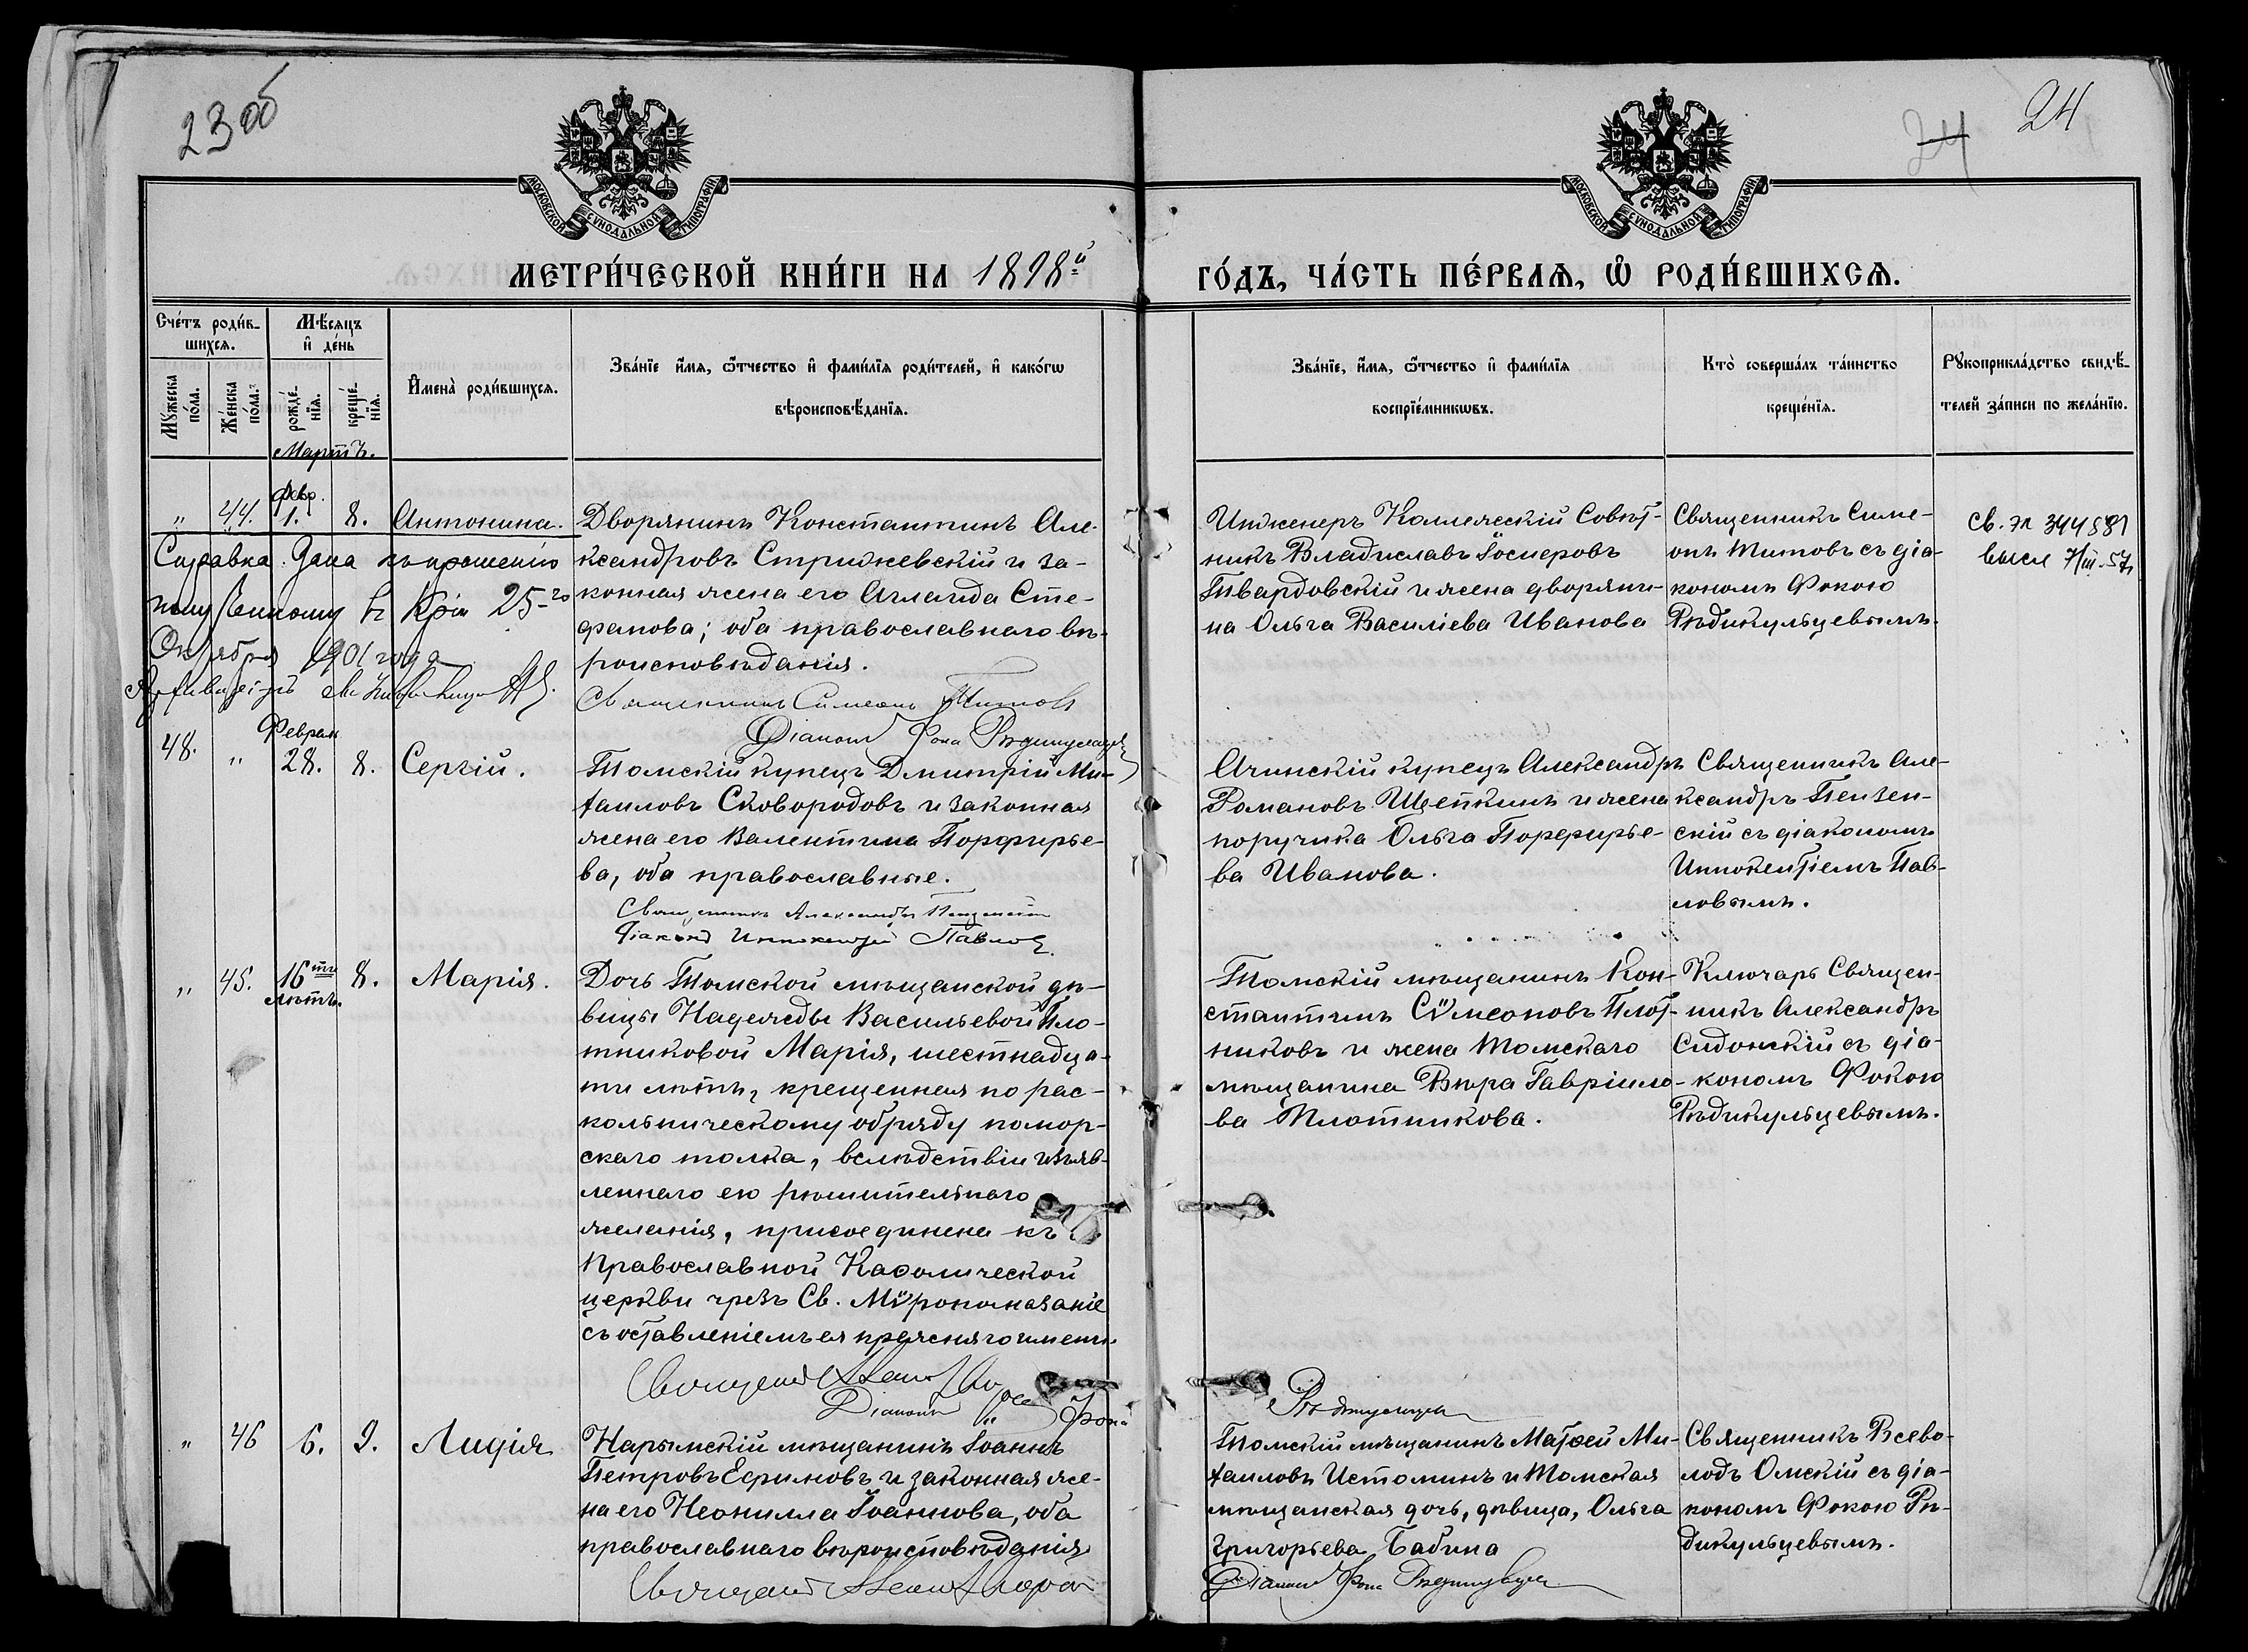 23 об
24
24
МОСКОВСКОЙ СУНОДАЛЬНОЙ ТИПОГРАФІИ
МОСКОВСКОЙ СУНОДАЛЬНОЙ ТИПОГРАФІИ
МЕТРИ́ЧЕСКОЙ КНИ́ГИ НА 1898й
ГО́ДЪ, ЧА́СТЬ ПЕ́РВАЯ, Ѡ РОДИ́ВШИХСѦ.
Сче́тъ роди́в-
шихсѧ.
Мꙋжеска
по́ла.
Же́нска
по́ла.
Мѣсѧцъ
и де́нь
рожде́-
нїѧ.
креще́-
нїѧ.
Мартъ.
Имена̀ роди́вшихсѧ.
Зва́нїе и́мѧ, ѻ́тчество и фами́лїѧ роди́телей, и како́гѡ
вѣроисповѣ́данїѧ.
Зва́нїе, и́мѧ, ѻ́тчество и фами́лїѧ
воспрїе́мникѡвъ.
Кто̀ соверша́лъ та́инство
креще́нїѧ.
Рꙋкоприкла́дство свидѣ́-
телей за́писи по жела́нїю.
" 44. Февр. 1. 8. Антонина.
Справка дана къ прошенію
25-го
Октября 1901 года
Дворянинъ Константинъ Але-
ксандровъ Стрижевскій и за-
конная жена его Аглаида Сте-
фанова; оба православнаго вѣ-
роисповѣданія.
Священникъ Симеонъ Титовъ
Діаконъ Фока Рѣдикульцевъ
Инженеръ Коллежскій Совѣт-
никъ Владиславъ Іосиеровъ
Твардовскій и жена дворяни-
на Ольга Василіева Иванова
Священникъ Симе-
онъ Титовъ съ діа-
кономъ Фокою
Рѣдикульцевымъ.
Св. эл 344581
высл 7/III-57г
48. " Феврал 28. 8. Сергій.
Томскій купецъ Дмитрій Ми-
хаиловъ Сковородовъ и законная
жена его Валентина Порфирье-
ва, оба православные.
Священникъ Александръ Пензенскій
Діаконъ Иннокентій Павловъ
Ачинскій купецъ Александръ
Романовъ Щепкинъ и жена
поручика Ольга Порфирье-
ва Иванова.
Священникъ Але-
ксандръ Пензен-
скій съ діакономъ
Иннокентіемъ Пав-
ловымъ.
" 45. 16ти лѣтъ. 8. Марія.
Дочь Томской мѣщанской дѣ-
вицы Надежды Васильевой Пло-
тниковой Марія, шестнадца-
ти лѣтъ, крещенная по рас-
кольническому обряду помор-
скаго толка, вслѣдствіи изъяв-
леннаго ею рѣшительнаго
желанія, присоединена къ
Православной Каѳолической
церкви чрезъ Св. Мѵропомазаніе
съ оставленіемъ ея прежняго имени.
Діаконъ Фока
Рѣдикульцевъ
Томскій мѣщанинъ Кон-
стантинъ Сѵмеоновъ Плот-
никовъ и жена Томскаго
мѣщанина Вѣра Гавріило-
ва Плотникова.
Ключарь Священ-
никъ Александръ
Сидонскій съ діа-
кономъ Фокою
Рѣдикульцевымъ.
" 46 6. 9. Лидія
Нарымскій мѣщанинъ Іоаннъ
Петровъ Ефимовъ и законная же-
на его Неонилла Іоаннова, оба
православнаго вѣроисповѣданія
Томскій мѣщанинъ Матѳей Ми-
хаиловъ Истоминъ и Томская
мѣщанская дочь, дѣвица, Ольга
Григорьева Бабина
Діаконъ Фока Рѣдикульцевъ
Священникъ Всево-
лодъ Омскій съ діа-
кономъ Фокою Рѣ-
дикульцевымъ.